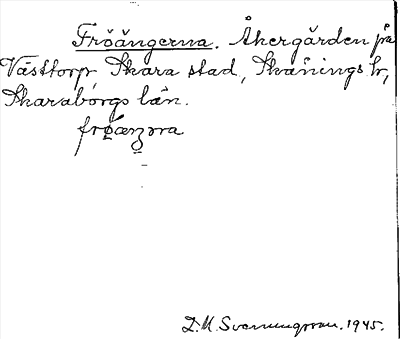 Fröängerna. Åkergärden på
Västtorp, Skara stad, Skånings hr,
Skaraborgs län.
frǿæŋɔra
D. M. Svenningsson. 1945.